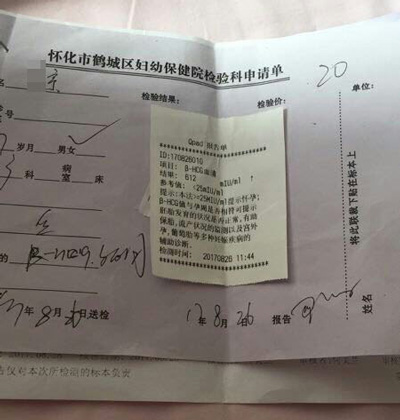 怀化市鹤城区妇幼保健院检验科申请单
名
检验结果:
检验价:
20
单位:
号
岁 月 男女
科 病室 床
将此联撕下贴在标本上
Qpad 报告单
ID:170826010
项目: β-HCG
结果: 612 mIU/ml ↑
参考值: <25mIU/ml
提示:本法>=25MIU/ml提示怀孕;
β-HCG值与孕周是否相符可提示
胚胎发育的状况是否正常,有助
保胎,流产状况的监测以及宫外
孕,葡萄胎等多种妊娠疾病的
辅助诊断.
检测时间: 20170826 11:44
的
年 8月 26 日送检
17年 8月 26 报告
姓名
告仅对本次所检测的标本负责